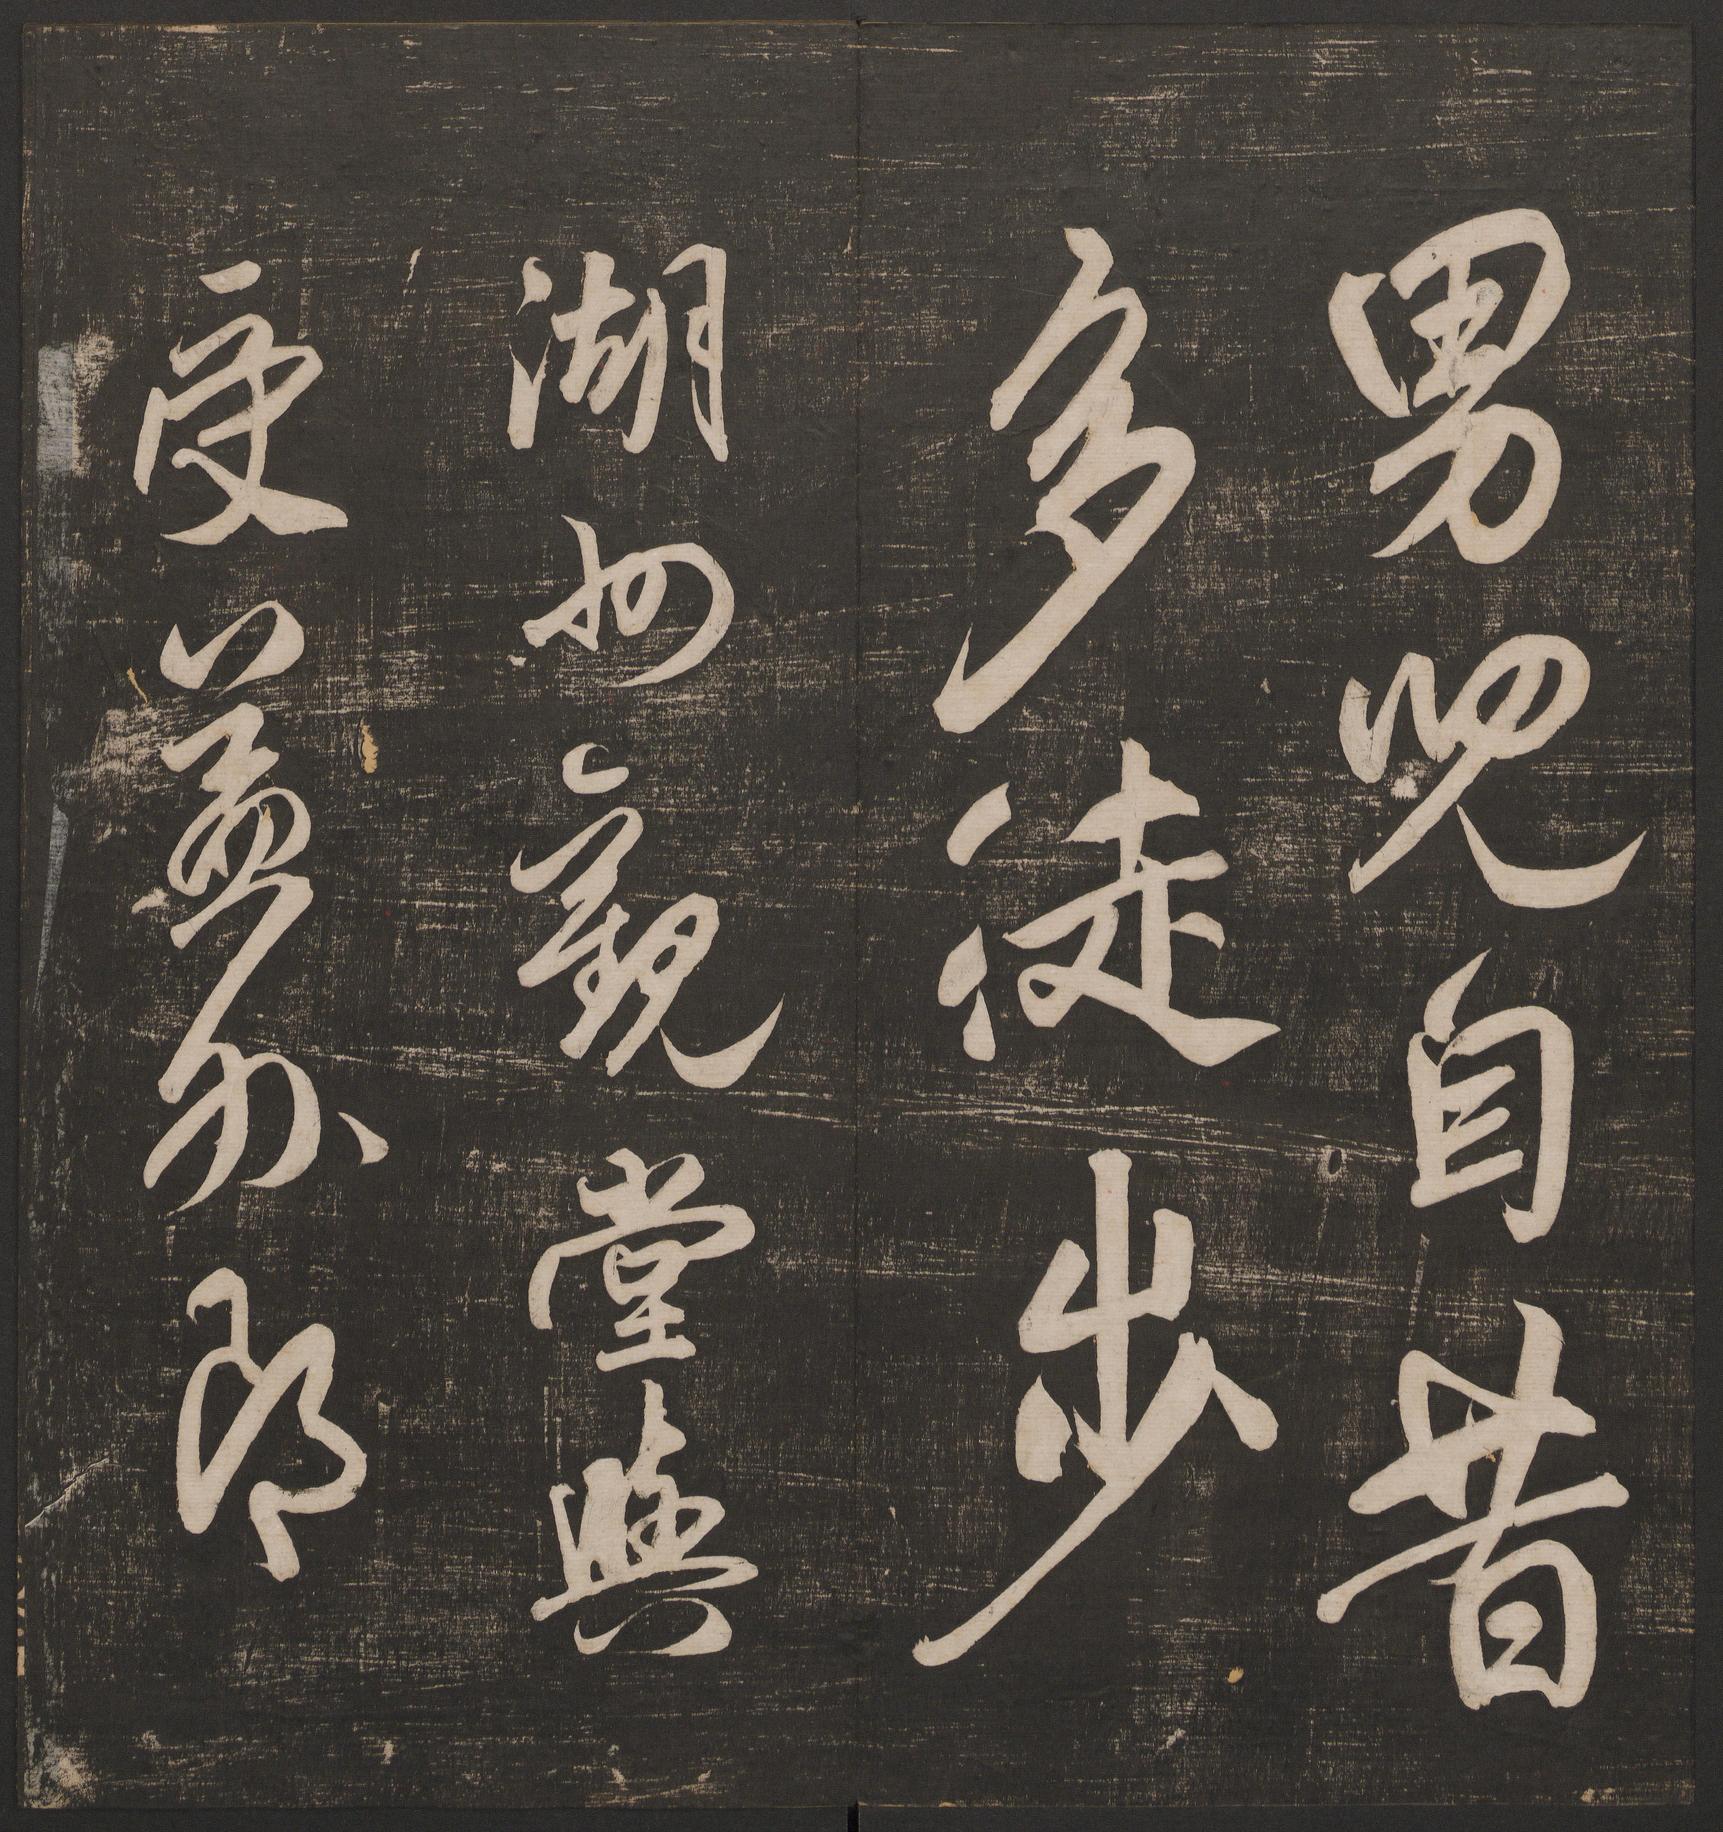 男兒自昔
多徒步
湖州觀堂與
受益外郎